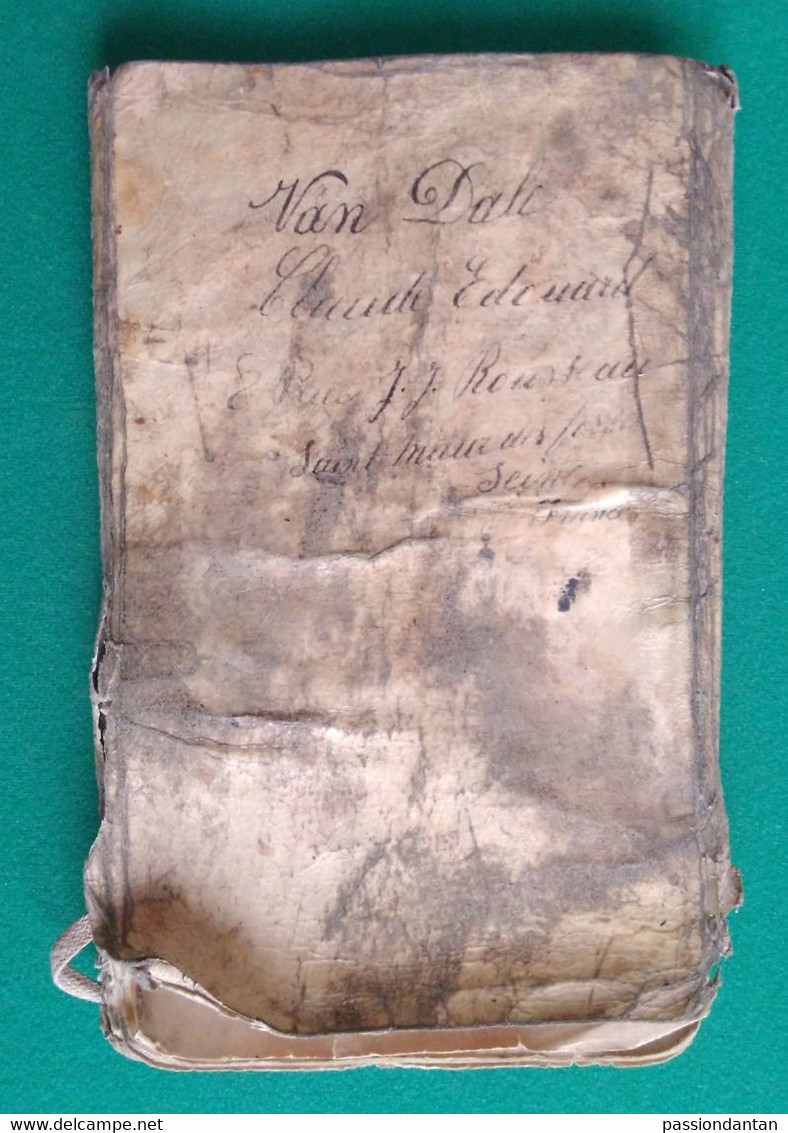 Van Dale
Claude Edouard
8 Rue J. J. Rousseau
Saint Maur des fossés
Seine
France
passiondantan
©delcampe.net